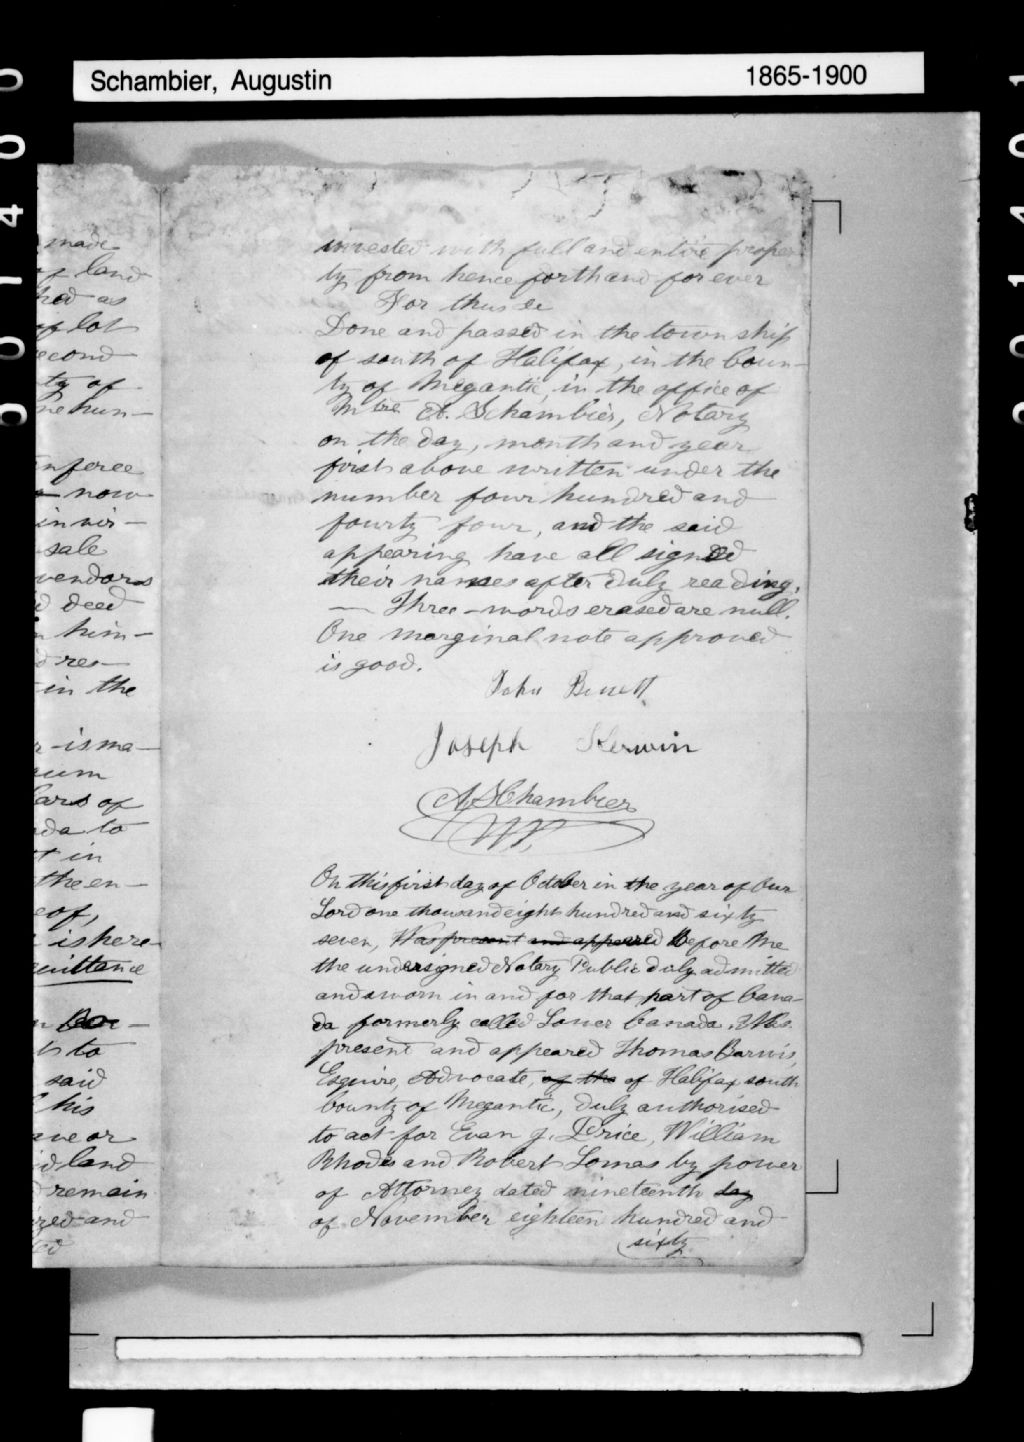 Schambier, Augustin 1865-1900
made
of land
hed as
of lot
econd
ty of
ne hun-
nferee
now
in vir-
sale
vendors
d deed
him-
d res-
in the
r is ma-
sum
lars of
ada to
t in
the en-
eof,
is here
quittance
to
said
his
ave or
id land
remain
ized and
ed
invested with full and entire proper
ty from hence forth and for ever
For thus &c
Done and passed in the town ship
of south of Halifax, in the Coun-
ty of Megantic, in the office of
Mtre A. Schambier, Notary
on the day, month and year
first above written under the
number four hundred and
fourty four, and the said
appearing have all signed
their names after duly reading.
— Three - words erased are null.
One marginal note approved
is good.
John Bennett
Joseph Kerwin
A. SChambier
N.P.
On this first day of October in the year of Our
Lord one thousand eight hundred and sixty
seven, Was present and appeared Before Me
the undersigned Notary Public duly admitted
and sworn in and for that part of Cana-
da formerly called Lower Canada. Was
present and appeared Thomas Barwis,
Esquire, Advocate, of the of Halifax south
County of Megantic, duly authorised
to act for Evan J. Price, William
Rhodes and Robert Lomas by power
of Attorney dated nineteenth day
of November eighteen hundred and
sixty